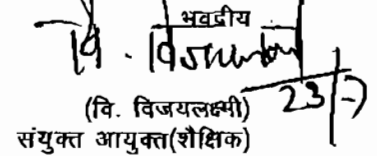 भवदीय
वि. विजयलक्ष्मी
23/7
(वि. विजयलक्ष्मी)
संयुक्त आयुक्त(शैक्षिक)